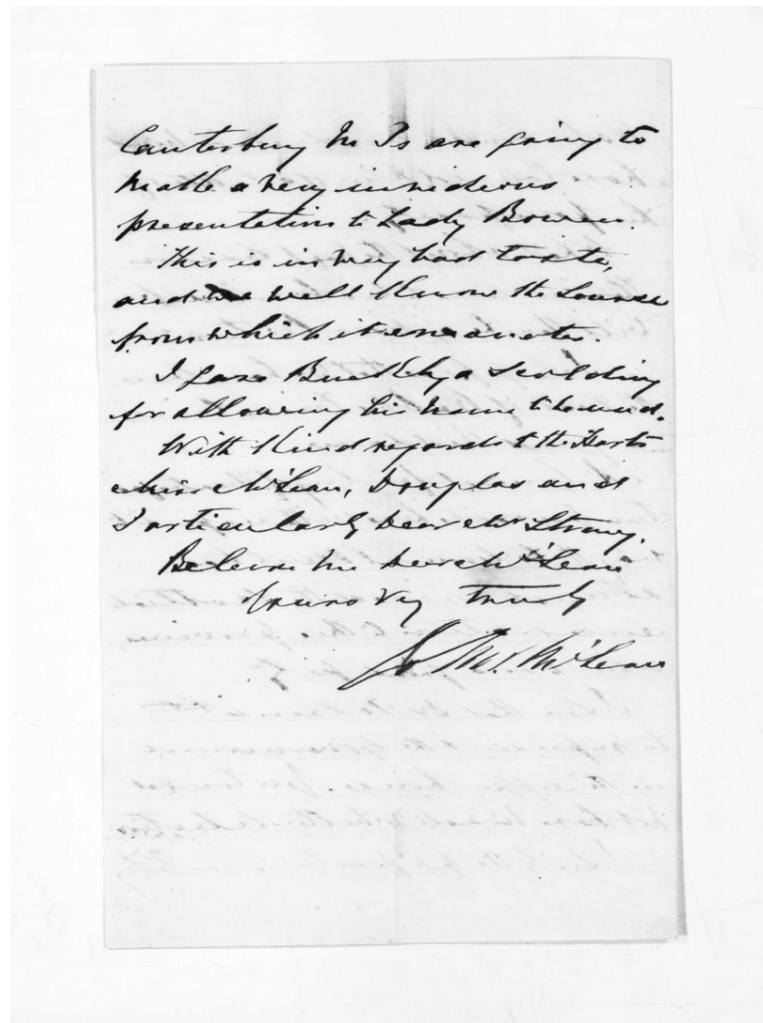 Canterbury M Ps are going to
make a very invidious
presentation to Lady Bowen.
This is in very bad taste,
and we well know the source
from which it emanates.
I gave Buckley a scolding
for allowing his name to be used.
With kind regards to the Harts
Miss McLean, Douglas and
Particularly dear Mr Strang.
Believe me dear McLean
Yours very truly
McLean